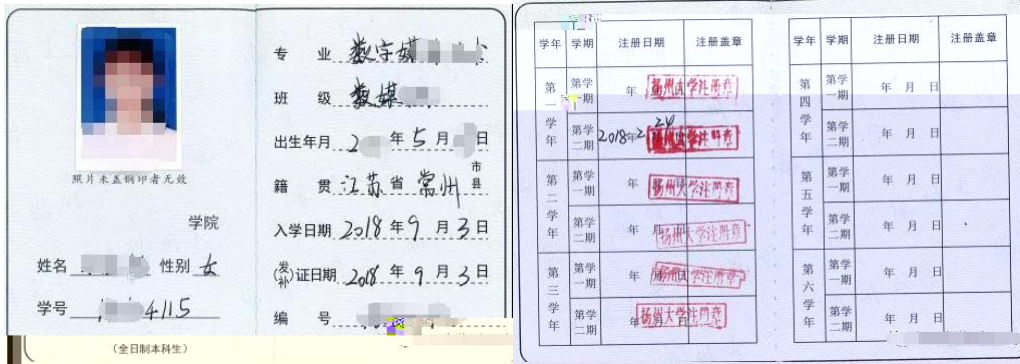 照片未盖钢印者无效
学院
姓名
性别 女
学号 4115
(全日制本科生)
专业 数字媒
班级 数媒
出生年月 2 年 5 月 日
籍贯 江苏省 常州 市县
入学日期 2018 年 9 月 3 日
(发补)证日期 2018 年 9 月 3 日
编号
学年 学期 注册日期 注册盖章
第一学年 第学一期 年 扬州大学注册章
第学二期 2018年2 24 扬州大学注册章
第二学年 第学一期 年 扬州大学注册章
第学二期 年 月 扬州大学注册章
第三学年 第学一期 年 扬州大学注册章
第学二期 年 月 日 扬州大学注册章
学年 学期 注册日期 注册盖章
第四学年 第学一期 年 月 日
第学二期 年 月 日
第五学年 第学一期 年 月 日
第学二期 年 月 日
第六学年 第学一期 年 月 日
第学二期 年 月 日